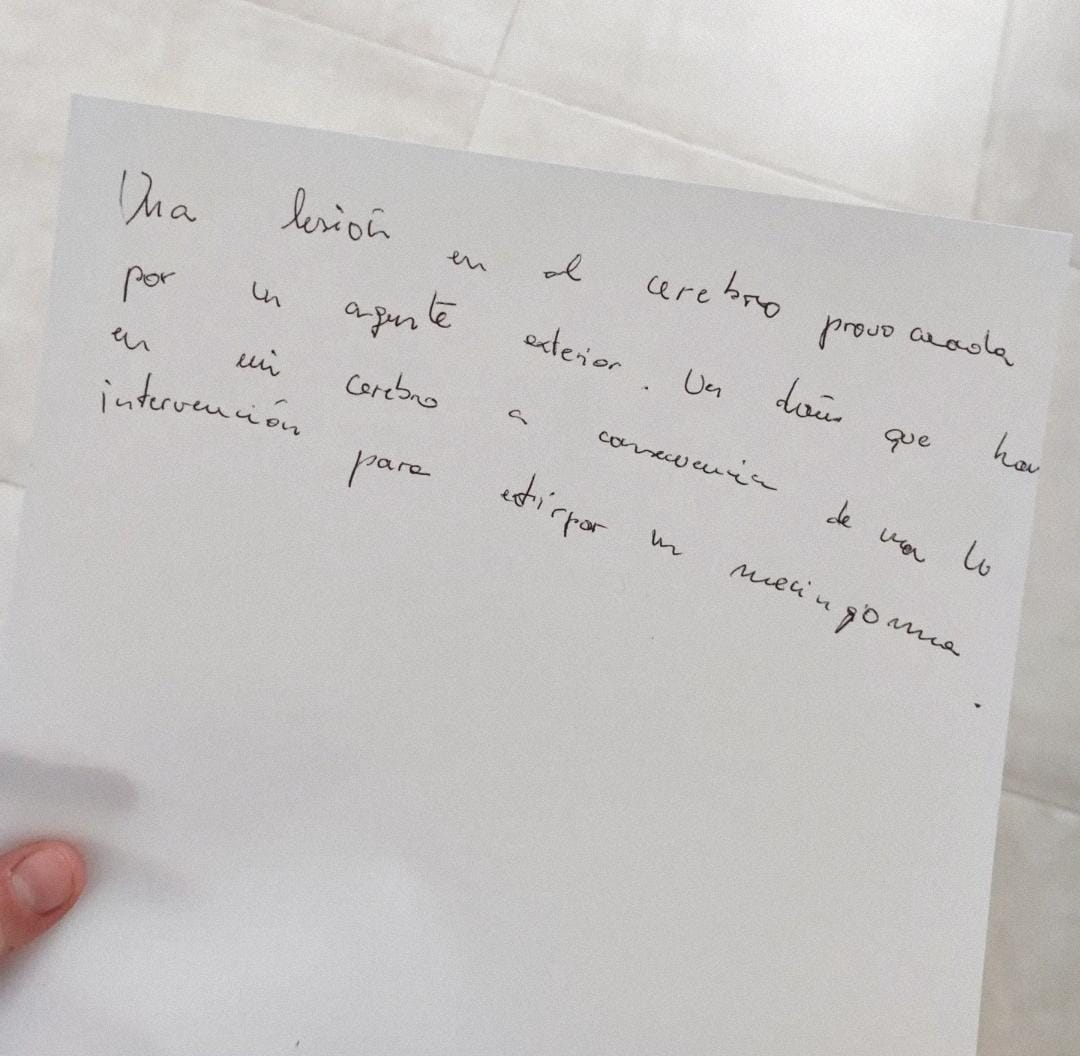 Una lesión en el cerebro provocada
por un agente exterior. Un daño que hay
en mi cerebro a consecuencia de una lo
intervención para estirpar un mecingioma.